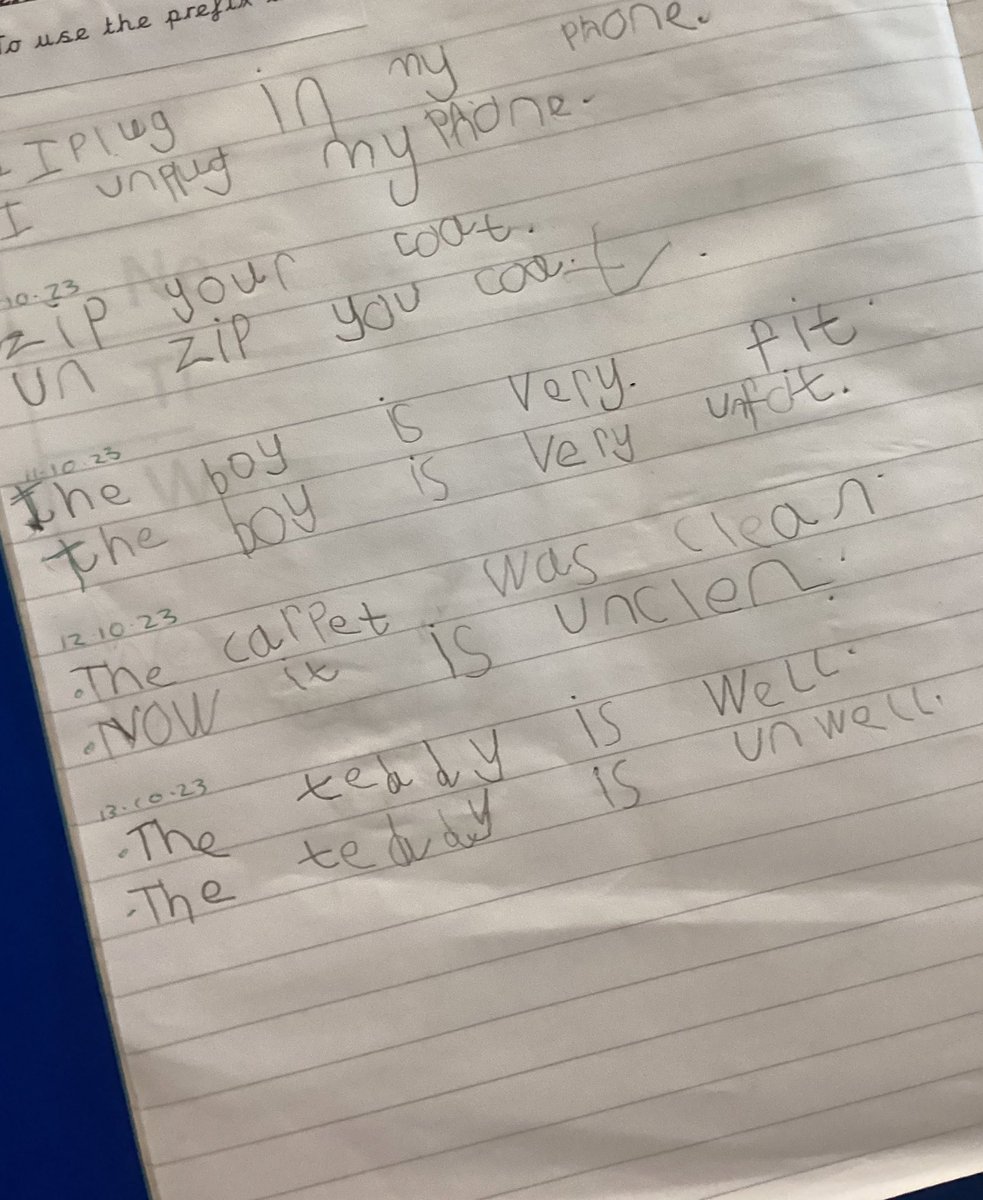 To use the prefix
I plug in my phone.
I unplug my phone.
10.23
zip your coat.
un zip you coat.
11.10.23
the boy is very. fit.
the boy is very unfit.
12.10.23
.The carpet was clean.
.Now it is unclen.
13.10.23
.The teddy is well.
.The teddy is unwell.